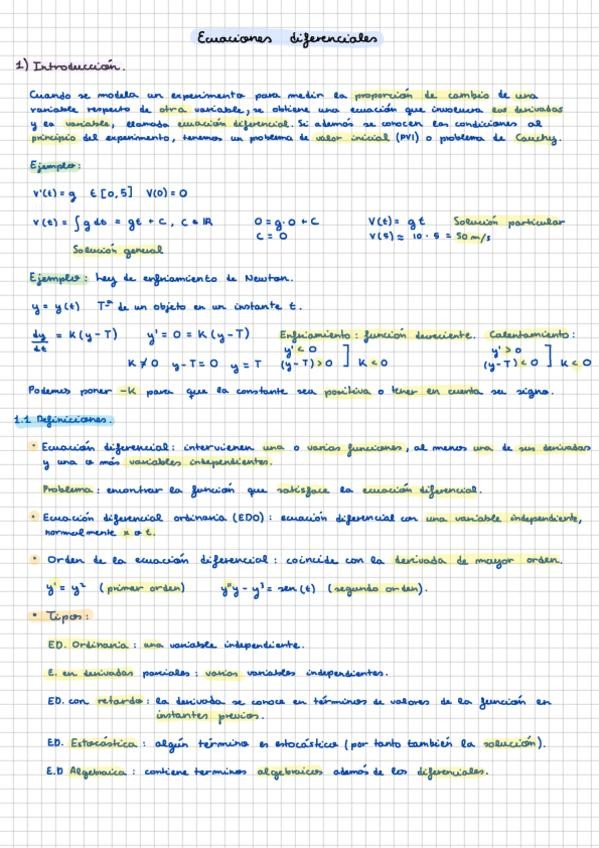 Ecuaciones diferenciales
1) Introducción.
Cuando se modela un experimento para medir la proporción de cambio de una
variable respecto de otra variable, se obtiene una ecuación que involucra las derivadas
y la variable, llamada ecuación diferencial. Si además se conocen las condiciones al
principio del experimento, tenemos un problema de valor inicial (PVI) o problema de Cauchy.
Ejemplo:
v'(t) = g t ∈ [0,5] V(0) = 0
v(t) = ∫ g dt = gt + C, C ∈ IR 0 = g·0 + C V(t) = gt Solución particular
C = 0 V(5) ≈ 10 · 5 = 50 m/s
Solución general
Ejemplo: Ley de enfriamiento de Newton.
y = y(t) Tª de un objeto en un instante t.
dy/dt = K(y-T) y' = 0 = K(y-T) Enfriamiento: función decreciente. Calentamiento:
y' < 0 y' > 0
K ≠ 0 y-T = 0 y = T (y-T) > 0 ] K < 0 (y-T) < 0 ] K < 0
Podemos poner -K para que la constante sea positiva o tener en cuenta su signo.
1.1 Definiciones.
• Ecuación diferencial: intervienen una o varias funciones, al menos una de sus derivadas
y una o más variables independientes.
Problema: encontrar la función que satisface la ecuación diferencial.
• Ecuación diferencial ordinaria (EDO): ecuación diferencial con una variable independiente,
normalmente x o t.
• Orden de la ecuación diferencial: coincide con la derivada de mayor orden.
y' = y² (primer orden) y''y - y³ = sen(t) (segundo orden).
• Tipos:
ED. Ordinaria: una variable independiente.
E. en derivadas parciales: varias variables independientes.
ED. con retardo: la derivada se conoce en términos de valores de la función en
instantes previos.
ED. Estocástica: algún término es estocástico (por tanto también la solución).
E.D Algebraica: contiene terminos algebraicos además de los diferenciales.